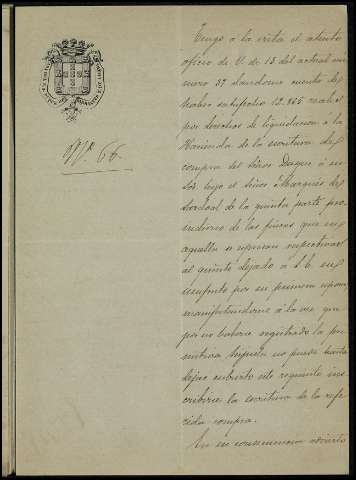 Nº. 66.
Tengo á la vista el atento
oficio de V. de 13 del actual nú
mero 37 dandome cuenta de
haber satisfecho 12.865 reales
por derechos de liquidacion á la
Hacienda de la escritura de
compra del Señor Duque á su
Sor. hijo el Señor Marqués de
de la quinta parte pro
indiviso de las fincas que en
aquella se espresan respectivas
al quinto dejado á S. E. en
usufruto por su primera esposa
manifestandome á la vez que
por no haberse registrado la pri
mitiva hijuela no puede hasta
dejar cubierto este requisito ins
cribirse la escritura de la refe
rida compra.
En su consecuencia advierto